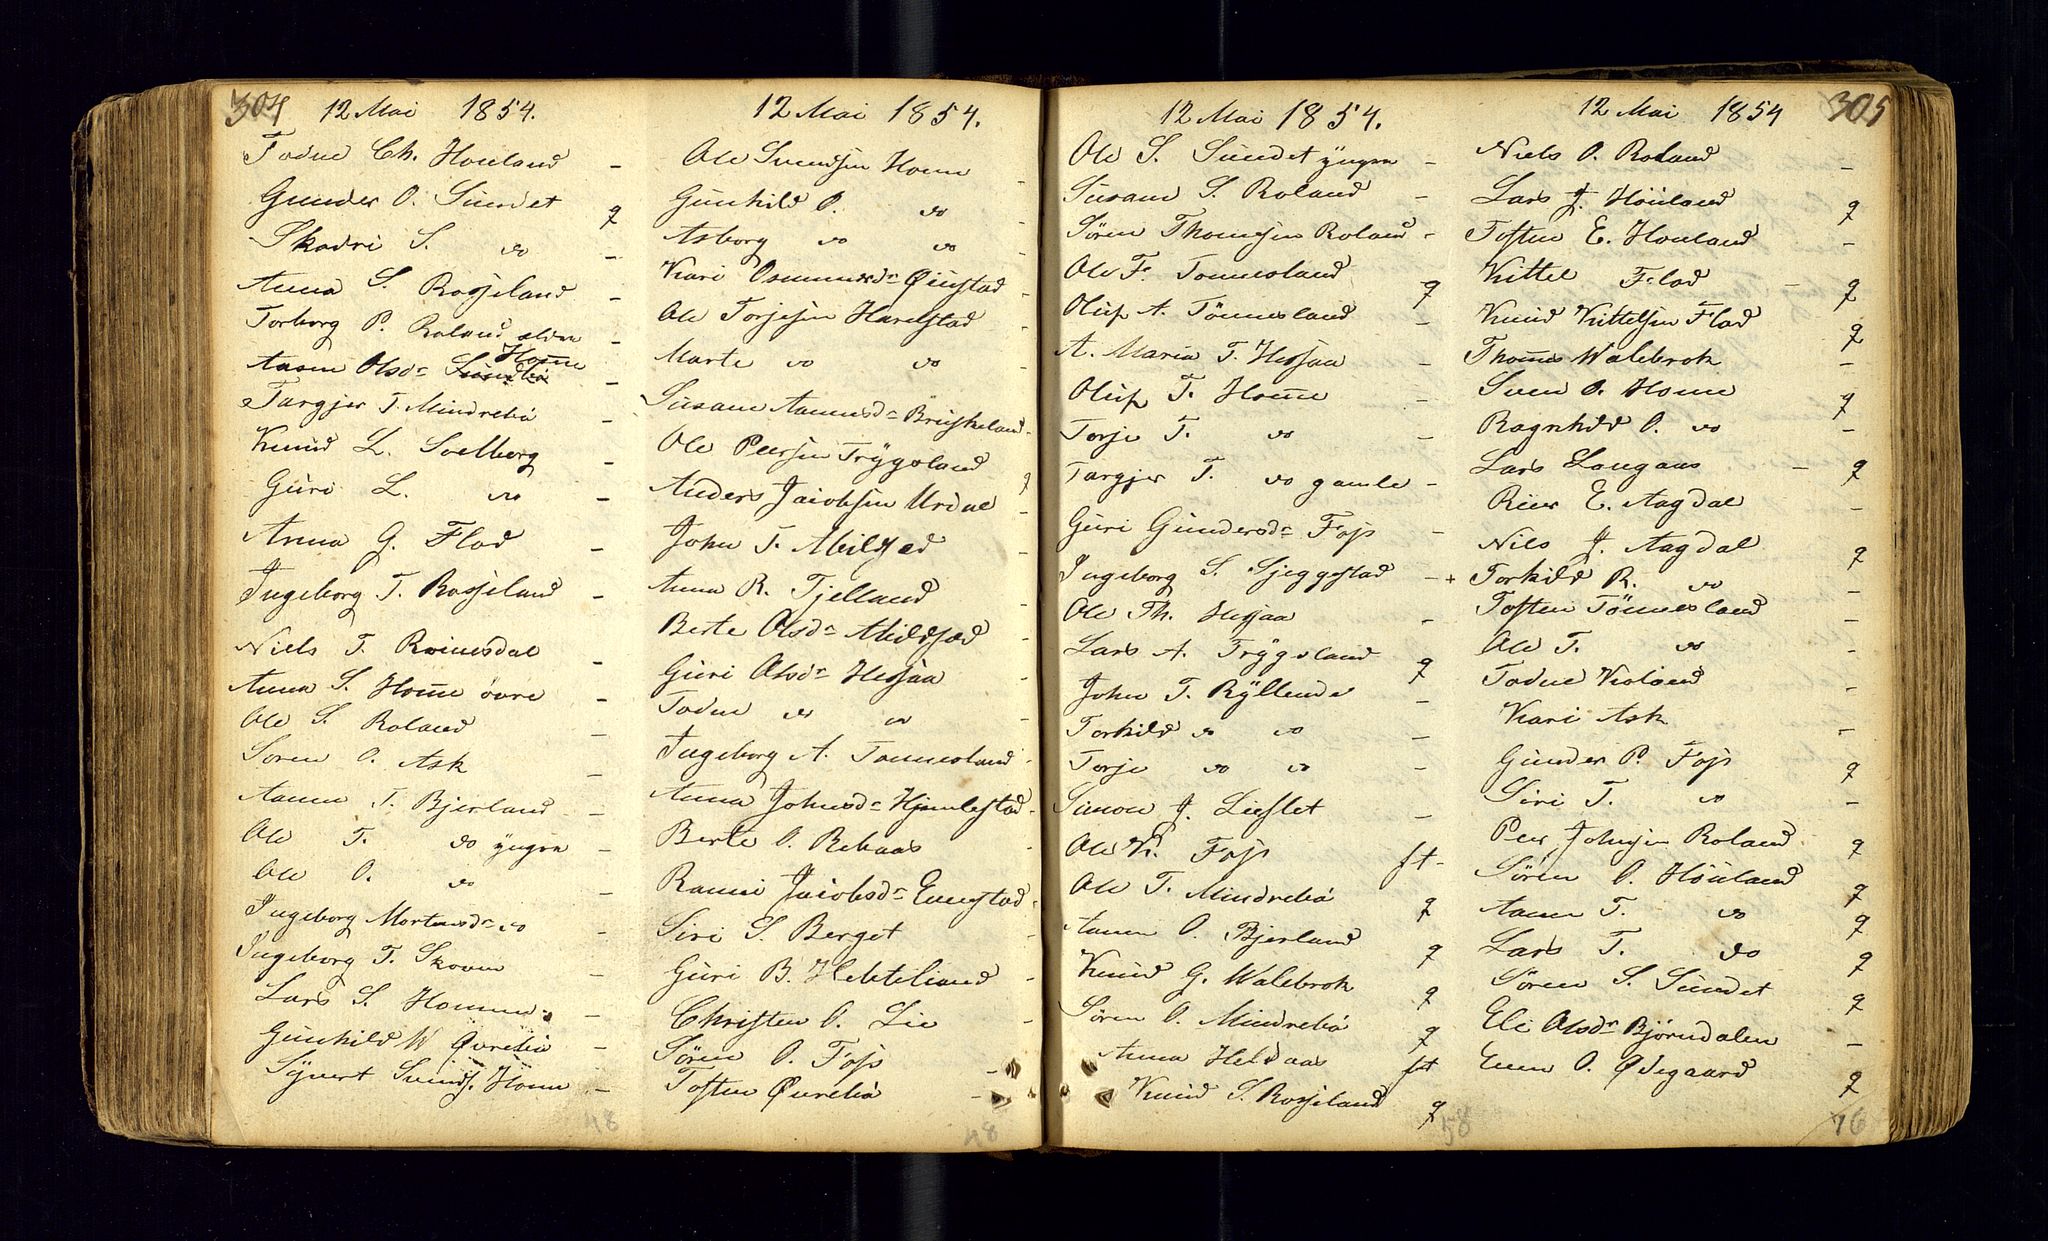 304 12 Mai 1854.
Todne Ch. Houland -
Gunder O. Sundet q
Skadri S. do -
Anna S. Rosseland -
Torborg P. Roland eldre -
Homme
Aasen Olsdr -
Targjer T. Mindrebö -
Knud L. Solberg -
Guri L. do -
Anna G. Flad -
Ingeborg T. Rosseland -
Niels T. Reimesdal -
Anna S. Homme övre -
Ole S. Roland -
Soren O. Ask -
Aanen T. Bjerland -
Ole T. do yngre -
Ole O. do -
Ingeborg Mortensdr do -
Ingeborg T. Skoven -
Lars S. Homme -
Gunhild W Øvrebö -
Sijvert Svends. Home -
48
12 Mai 1854.
Ole Svendsen Home -
Gunhild O. do -
Asborg do do -
Kari Osmundsdr Øiestad -
Ole Torjesen Harelstad -
Marte do do -
Susane Aanensdr Bruskeland -
Ole Peersen Trygsland q
Anders Jacobsen Urdal -
John T. Meilssed -
Anna R. Tjelland -
Berte Olsdr Mildssed -
Guri Olsdr Hessaa -
Todne do do -
Ingeborg A. Tonnesland -
Anna Johnsdr Hjemlestad -
Berte O. Rebaas -
Rannei Jacobsdr Evenstad -
Siri S. Berget -
Guri B. Hekteland -
Christen O. Lie -
Sören O. Foss -
Tosten Øvrebö -
48
12 Mai 1854.
Ole S. Sundet yngre -
Susane S. Roland -
Sören Thomesen Roland -
Ole F. Tonnesland q
Oluf A. Tönnesland -
A. Maria T. Hessaa -
Oluf T. Home -
Torje T. do -
Targjer T. do gamle -
Guri Gundersdr Foss -
Ingeborg S. Sjeggestad - +
Ole Th. Hessaa -
Lars A. Trygsland q
John T. Kyllende -
Torkild do do -
Torje do do -
Simon J. Lieslet -
Ole K. Foss ft -
Ole T. Mindrebö q
Aanen O. Bjerland q
Knud G. Walebrok q
Sören O. Mindrebö q
Anna Heldaas ft
Knud S. Rosseland q
58
12 Mai 1854 305
Niels O. Roland -
Lars J. Höuland q
Tosten E. Houland -
Kittel Flad - q
Knud Kittelsen Flad q
Thomes Walebrok -
Sven O. Home q
Ragnhild O. do -
Lars Langaas - q
Reier E. Aagdal -
Niels J. Aagdal q
Torkild R. do
Tosten Tönnesland -
Ole T. do -
Todne Kiland -
Kari Ask -
Gunder P. Foss q
Siri T. do -
Peer Johnsen Roland q
Sören O. Höuland q
Aanen T. do q
Lars T. do q
Sören S. Sundet q
Eli Olsdr Björndalen -
Even O. Ødegaard q
76